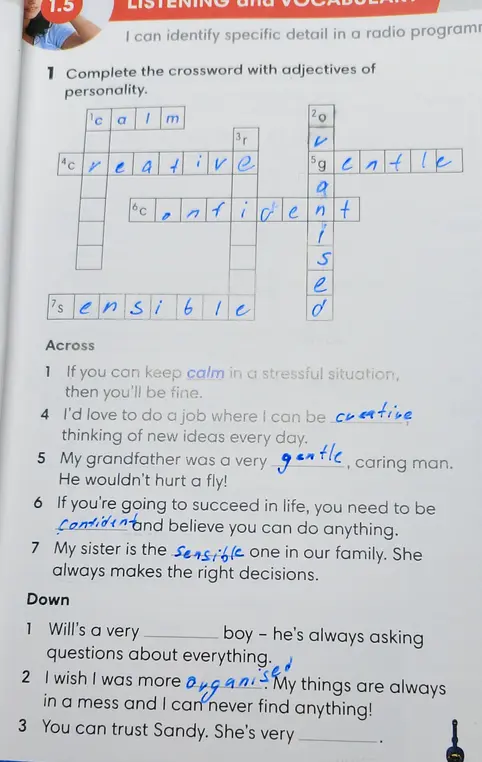 1.5 LISTENING and VOCABULARY
I can identify specific detail in a radio programm
1 Complete the crossword with adjectives of
personality.
1c a l m
2o
3r
v
4c r e a t i v e
5g e n t l e
a
6c o n f i d e n t
i
s
e
7s e n s i b l e
d
Across
1 If you can keep calm in a stressful situation,
then you'll be fine.
4 I'd love to do a job where I can be creative,
thinking of new ideas every day.
5 My grandfather was a very gentle, caring man.
He wouldn't hurt a fly!
6 If you're going to succeed in life, you need to be
confident and believe you can do anything.
7 My sister is the sensible one in our family. She
always makes the right decisions.
Down
1 Will's a very ________ boy – he's always asking
questions about everything.
2 I wish I was more organised. My things are always
in a mess and I can never find anything!
3 You can trust Sandy. She's very ________.